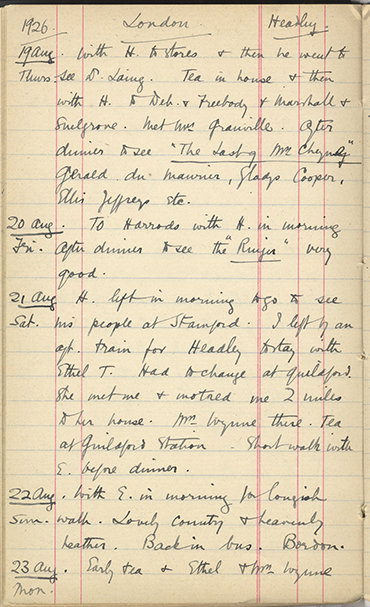 1926. London. Headley.
19 Aug. With H. to stores & then he went to
Thurs. see D. Laing. Tea in house & then
with H. to Deb. & Freebody & Marshall &
Snelgrove. Met Mrs Granville. After
dinner to see "The Last of Mrs Cheyney"
Gerald du Maurier, Gladys Cooper,
Ellis Jeffreys etc.
20 Aug. To Harrods with H. in morning
Fri. After dinner to see the "Ringer" very
good.
21 Aug H. left in morning to go to see
Sat. his people at Stamford. I left by an
aft. train for Headley to stay with
Ethel T. Had to change at Guildford.
She met me & motored me 2 miles
to her house. Mrs Wynne there. Tea
at Guildford Station. Short walk with
E. before dinner.
22 Aug. With E. in morning for longish
Sun. walk. Lovely country & heavenly
heather. Back in bus. Bordon.
23 Aug. Early tea & Ethel & Mrs Wynne
Mon.